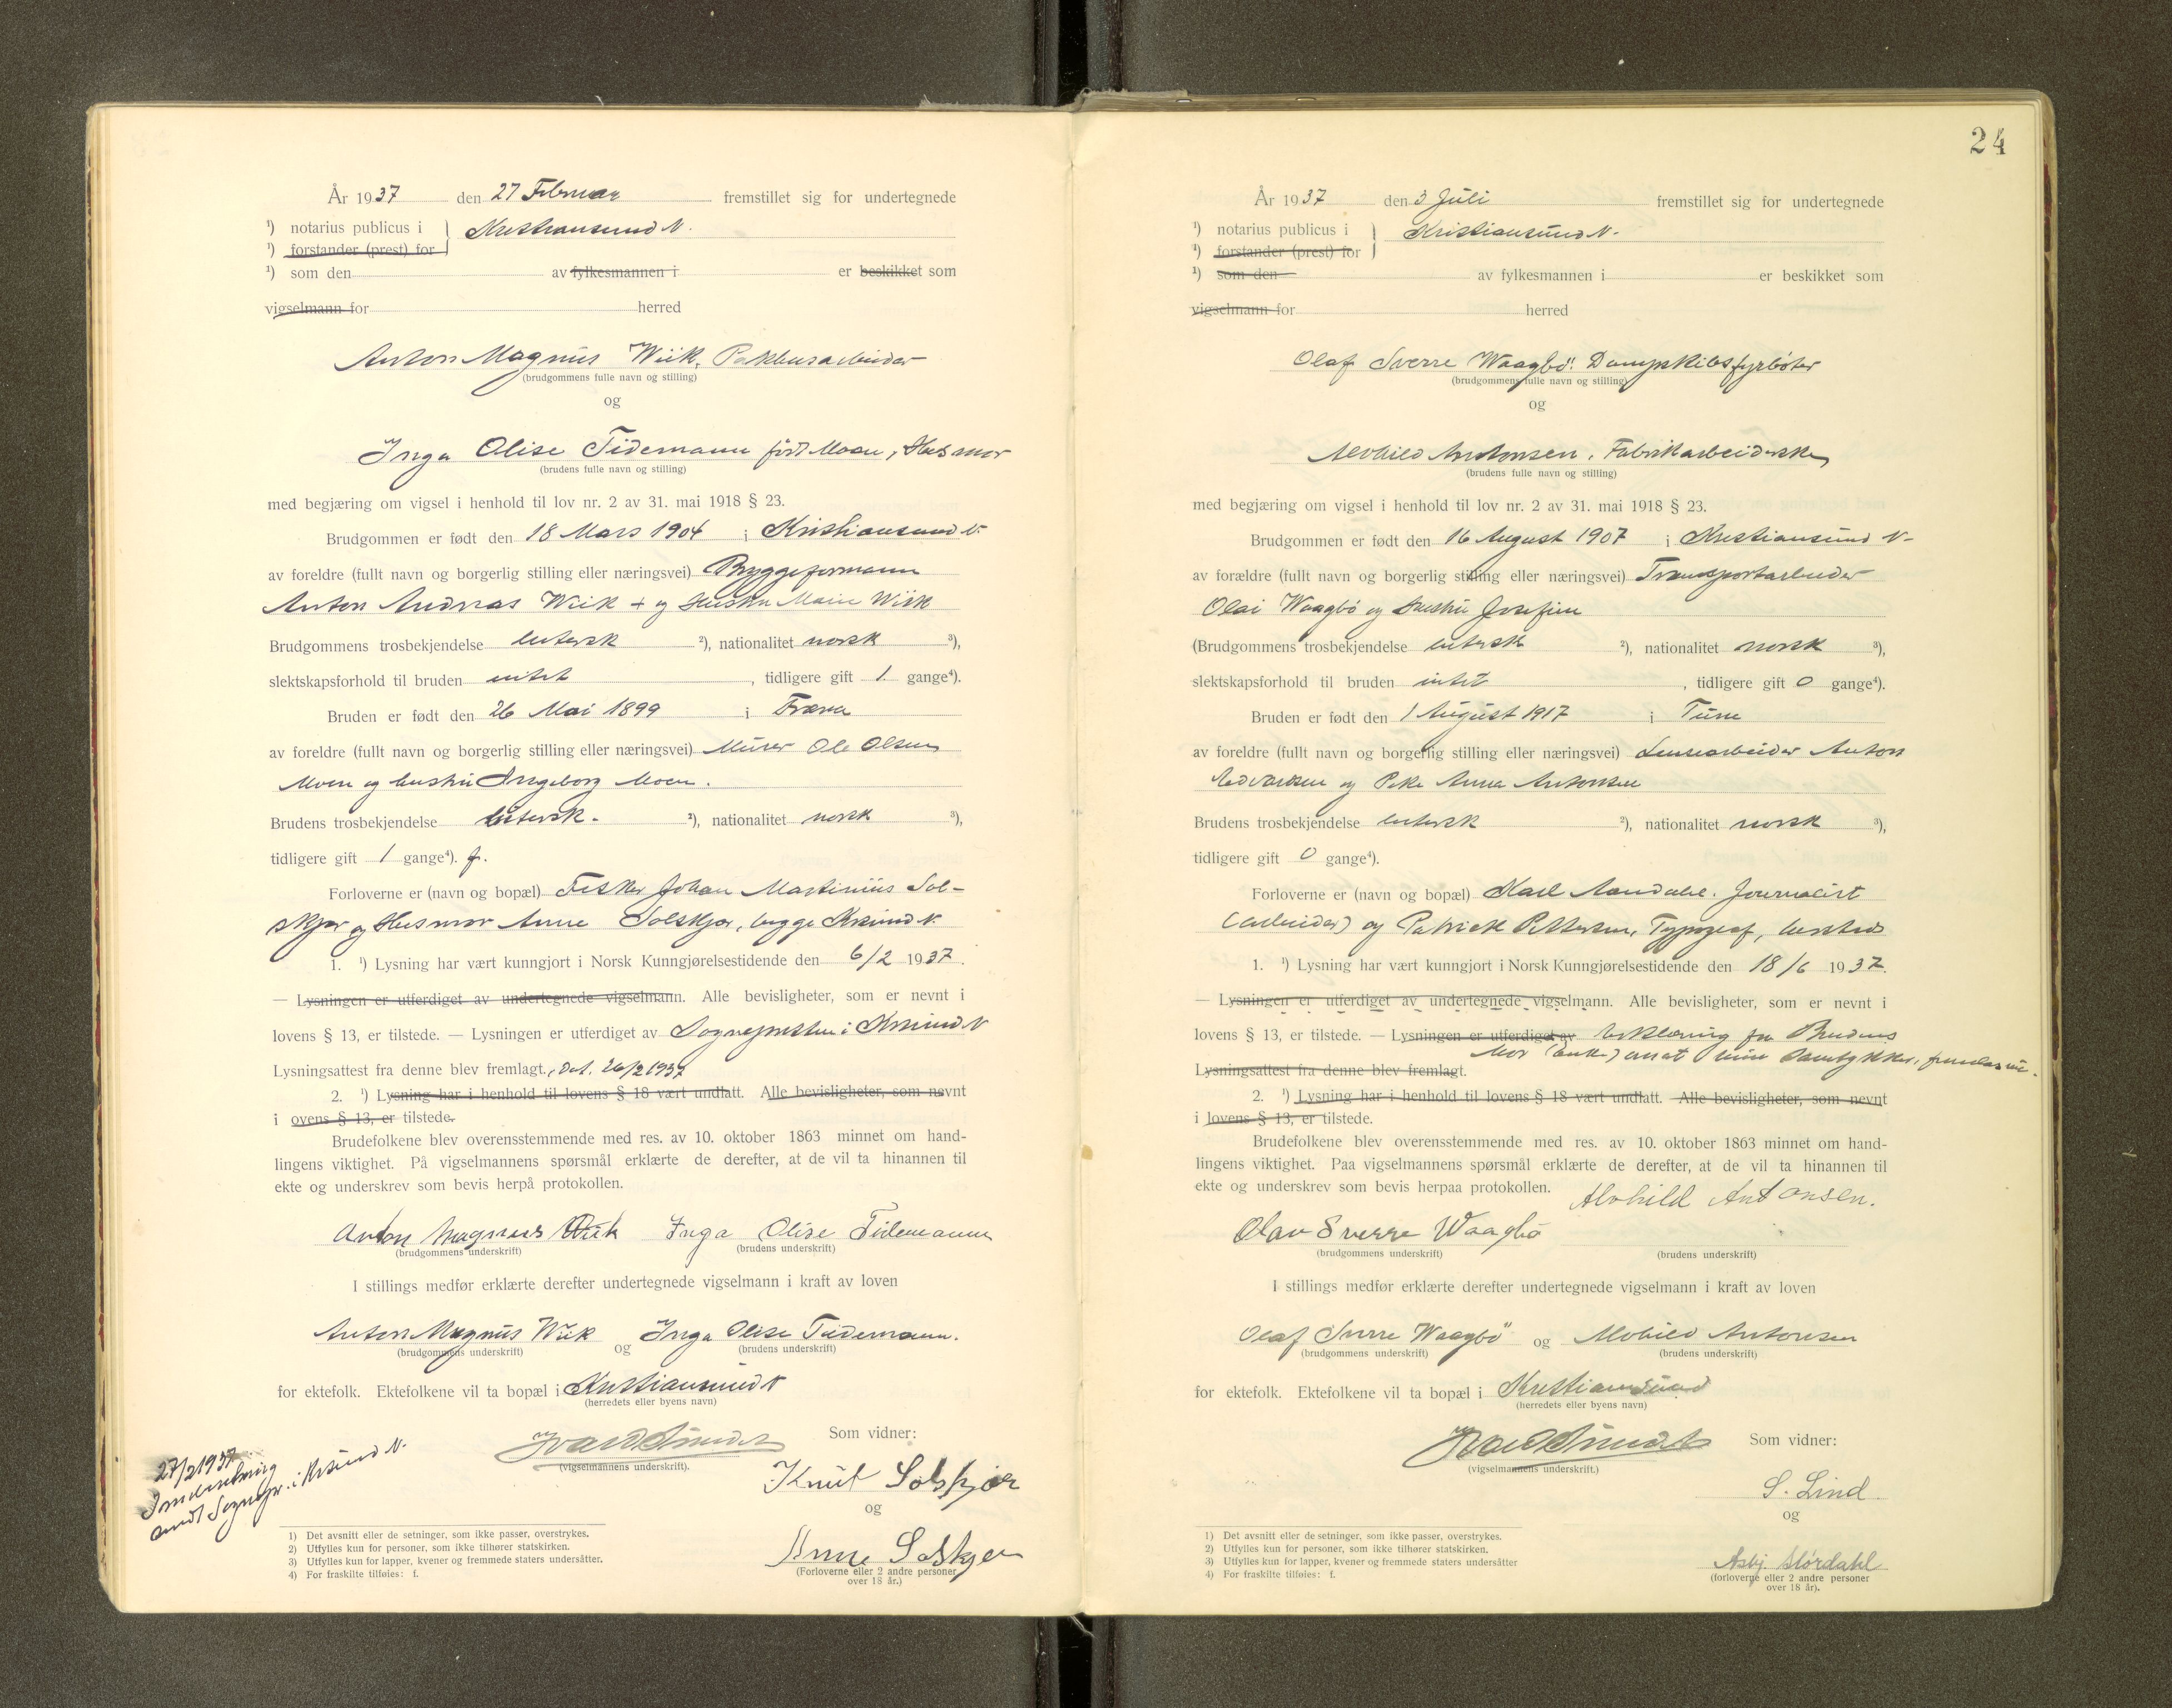 År 1937 den 27 Februar fremstillet sig for undertegnede
¹) notarius publicus i Kristiansund N.
¹) forstander (prest) for
¹) som den av fylkesmannen i er beskikket som
vigselmann for herred
Anton Magnus Wiik, Pakhusarbeider
(brudgommens fulle navn og stilling)
og
Inga Olise Tidemann født Moen, Husmor
(brudens fulle navn og stilling)
med begjæring om vigsel i henhold til lov nr. 2 av 31. mai 1918 § 23.
Brudgommen er født den 18 Mars 1904 i Kristiansund N.
av foreldre (fullt navn og borgerlig stilling eller næringsvei) Bryggeformann
Anton Andreas Wiik + og Hustru Marie Wiik
Brudgommens trosbekjendelse lutersk ²), nationalitet norsk ³),
slektskapsforhold til bruden intet, tidligere gift 1 gange⁴).
Bruden er født den 26 Mai 1899 i Fræna
av foreldre (fullt navn og borgerlig stilling eller næringsvei) Murer Ole Olsen
Moen og hustru Ingeborg Moen.
Brudens trosbekjendelse lutersk. ²), nationalitet norsk ³),
tidligere gift 1 gange⁴). f.
Forloverne er (navn og bopæl) Fisker Johan Martinius Sol-
skjær og Husmor Anne Solskjær, begge Krsund N.
1. ¹) Lysning har vært kunngjort i Norsk Kunngjørelsestidende den 6/2 1937.
— Lysningen er utferdiget av undertegnede vigselmann. Alle bevisligheter, som er nevnt i
lovens § 13, er tilstede. — Lysningen er utferdiget av Sognepresten i Krsund N
Lysningsattest fra denne blev fremlagt., dat. 26/2 1937
2. ¹) Lysning har i henhold til lovens § 18 vært undlatt. Alle bevisligheter, som nevnt
i ovens § 13, er tilstede.
Brudefolkene blev overensstemmende med res. av 10. oktober 1863 minnet om hand-
lingens viktighet. På vigselmannens spørsmål erklærte de derefter, at de vil ta hinannen til
ekte og underskrev som bevis herpå protokollen.
Anton Magnus Wiik Inga Olise Tidemann
(brudgommens underskrift) (brudens underskrift)
I stillings medfør erklærte derefter undertegnede vigselmann i kraft av loven
Anton Magnus Wiik og Inga Olise Tidemann.
(brudgommens underskrift) (brudens underskrift)
for ektefolk. Ektefolkene vil ta bopæl i Kristiansund N
(herredets eller byens navn)
Som vidner:
(vigselmannens underskrift).
Knut Solskjær
og
Anne Solskjær
(Forloverne eller 2 andre personer
over 18 år.)
27/2 1937
Innberetning
sendt Sognepr. i Krsund N.
1) Det avsnitt eller de setninger, som ikke passer, overstrykes.
2) Utfylles kun for personer, som ikke tilhører statskirken.
3) Utfylles kun for lapper, kvener og fremmede staters undersåtter.
4) For fraskilte tilføies: f.
24
År 1937 den 3 Juli fremstillet sig for undertegnede
¹) notarius publicus i Kristiansund N.
¹) forstander (prest) for
¹) som den av fylkesmannen i er beskikket som
vigselmann for herred
Olaf Sverre Waagbö. Dampskibsfyrbøter
(brudgommens fulle navn og stilling)
og
Alvhild Antonsen, Fabrikarbeiderske
(brudens fulle navn og stilling)
med begjæring om vigsel i henhold til lov nr. 2 av 31. mai 1918 § 23.
Brudgommen er født den 16 August 1907 i Kristiansund N-
av forældre (fullt navn og borgerlig stilling eller næringsvei) Transportarbeider
Olai Waagbö og hustru Josefine
(Brudgommens trosbekjendelse lutersk ²), nationalitet norsk ³),
slektskapsforhold til bruden intet, tidligere gift 0 gange⁴).
Bruden er født den 1 August 1917 i Tune
av foreldre (fullt navn og borgerlig stilling eller næringsvei) Lensearbeider Anton
Edvardsen og Anna Antonsen
Brudens trosbekjendelse lutersk ²), nationalitet norsk ³),
tidligere gift 0 gange⁴).
Forloverne er (navn og bopæl) Karl Aandahl. Journalist
(arbeider) og Patrick Pettersen, Typograf, her sted
1. ¹) Lysning har vært kunngjort i Norsk Kunngjørelsestidende den 18/6 1937.
— Lysningen er utferdiget av undertegnede vigselmann. Alle bevisligheter, som er nevnt i
lovens § 13, er tilstede. — Lysningen er utferdiget av Erklæring fra Brudens
Mor (Enke) om at hun samtykker,
Lysningsattest fra denne blev fremlagt.
2. ¹) Lysning har i henhold til lovens § 18 vært undlatt. Alle bevisligheter, som nevnt
i lovens § 13, er tilstede.
Brudefolkene blev overensstemmende med res. av 10. oktober 1863 minnet om hand-
lingens viktighet. Paa vigselmannens spørsmål erklærte de derefter, at de vil ta hinannen til
ekte og underskrev som bevis herpaa protokollen.
Olav Sverre Waagbø Alvhild Antonsen.
(brudgommens underskrift) (brudens underskrift)
I stillings medfør erklærte derefter undertegnede vigselmann i kraft av loven
Olaf Sverre Waagbö og Alvhild Antonsen
(brudgommens underskrift) (brudens underskrift)
for ektefolk. Ektefolkene vil ta bopæl i Kristiansund
(herredets eller byens navn)
Som vidner:
(vigselmannens underskrift.)
S. Lind
og
Asbj. Størdahl
(forloverne eller 2 andre personer
over 18 år).
1) Det avsnitt eller de setninger, som ikke passer, overstrykes.
2) Utfylles kun for personer, som ikke tilhører statskirken.
3) Utfylles kun for lapper, kvener og fremmede staters undersåtter
4) For fraskilte tilføies: f.